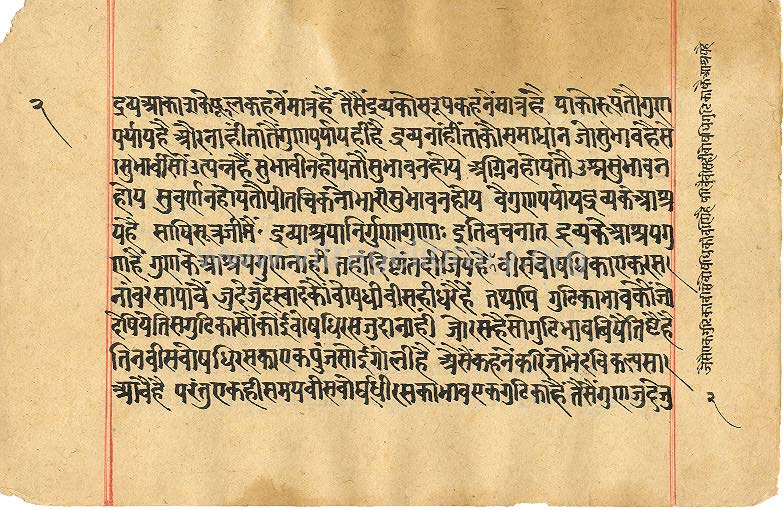 २
द्रव्य आकाशके फूल कहनें मात्र है तैसें द्रव्यकौ सरूप कहनें मात्र है याको रूप तौ गुण
पर्याय है और नाही तातै गुणपर्याय ही है द्रव्य नांही ताकौ समाधान जो सुभाव है सो
सुभावीसौं उत्पन्न है सुभावी न होय तौ सुभाव न होय अग्नि न होय तौ उष्म सुभाव न
होय सुवर्ण न होय तौ पीत चिकनो भारी सुभाव न होय वै गुणपर्याय द्रव्यके आश्र
य है सोपि सूत्रजीमैं द्रव्याश्रया निर्गुणा गुणाः इति वचनात द्रव्यके आश्रय गु
ण है गुणके आश्रय गुण नाही दृष्टांत दीजीये है वीस वोषधिका एक
जुदे जुदे स्वादकौ वोषधी वीस ही धरै है तथापि गुटिकाभावकौं जो
देषिये तिस गुटिकासौं कोई वोषधिरस जुदा नाही जो रस है सो गुटिभाव विषे तिष्टै है
तिन वीस वोषधिरसका एक पुंज सोई गोली है असैं कहनेंकरि जो भेदविकल्पसा
आवै है परंतु एक ही समय वीस वोषधीरसका भाव एक गुटिका है तैसें गुण जुदे जु
२